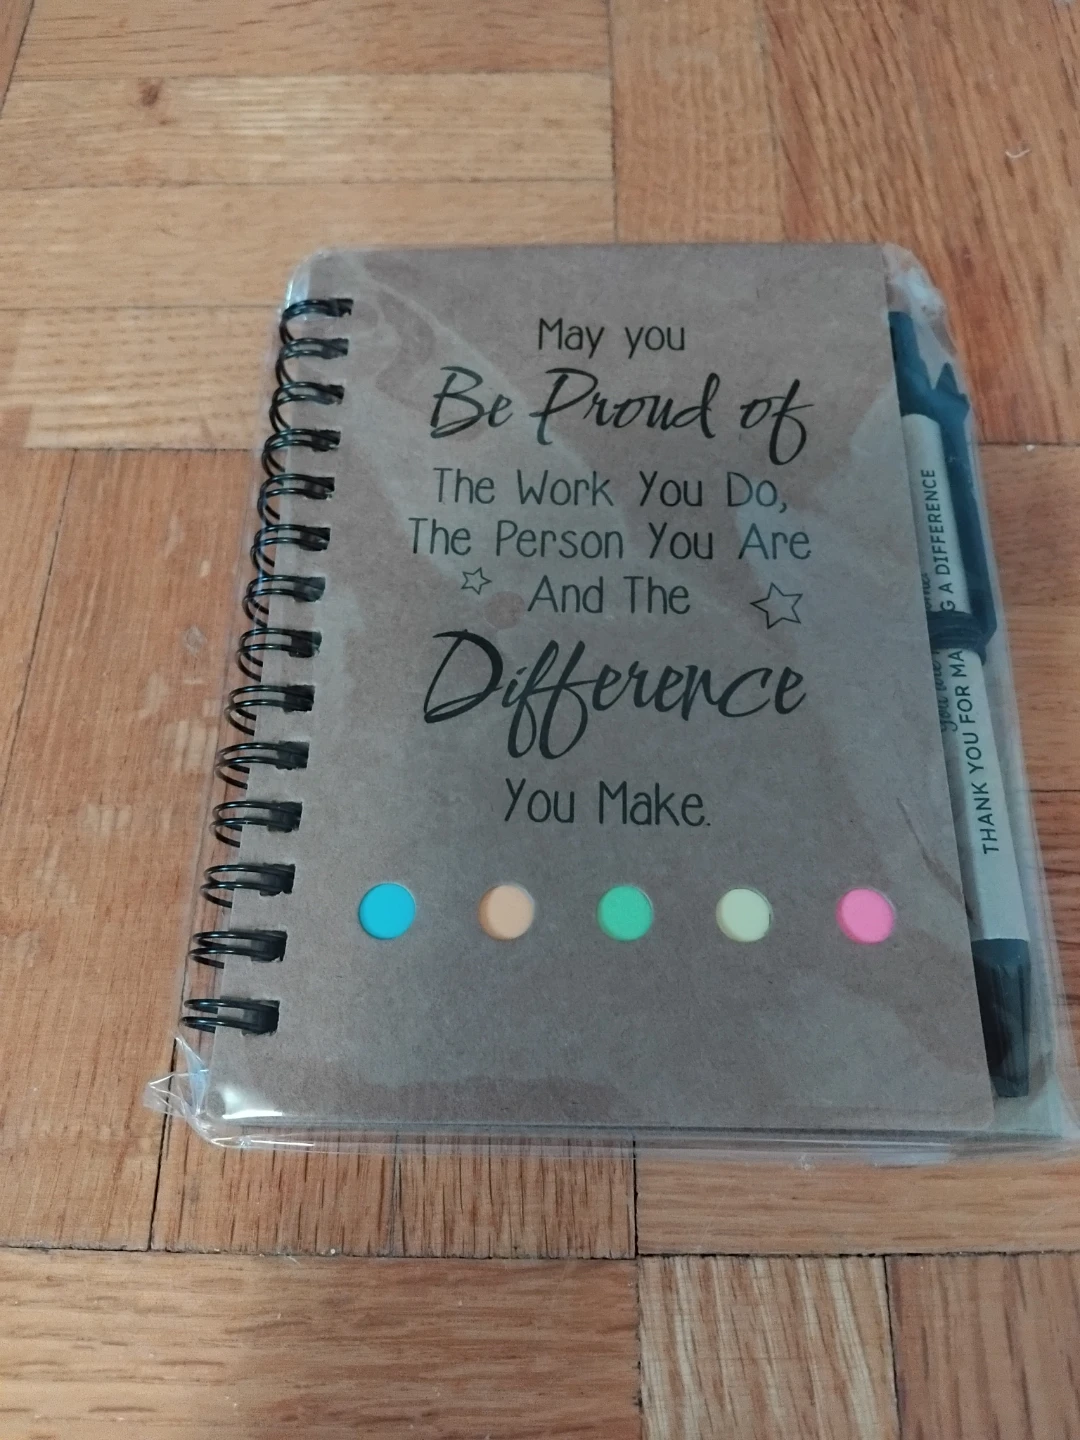 May you
Be Proud of
The Work You Do,
The Person You Are
And The
Difference
You Make.
THANK YOU FOR MA G A DIFFERENCE
You are